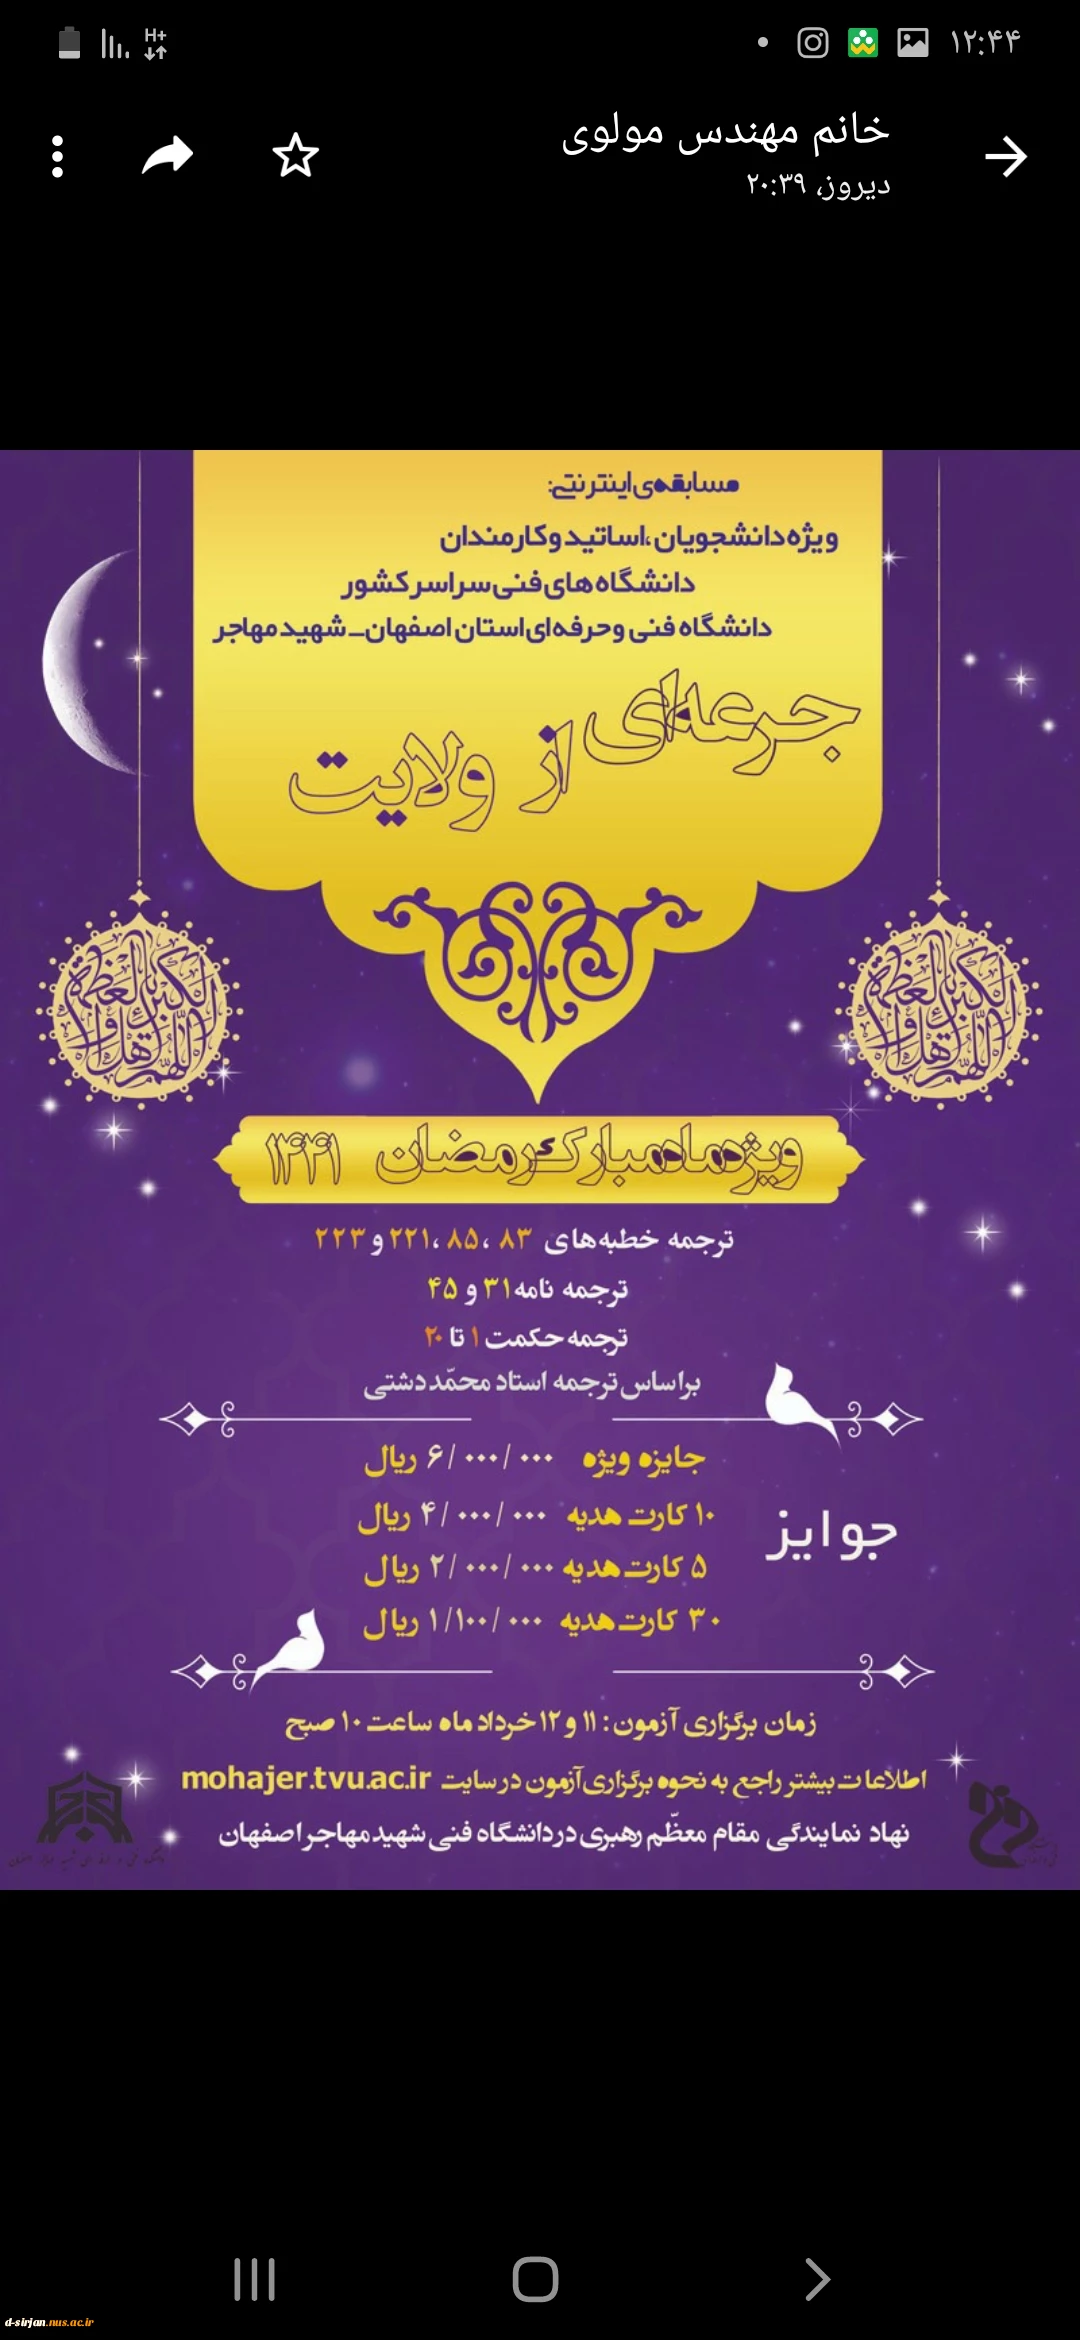 ۱۲:۴۴
H+
خانم مهندس مولوی
دیروز، ۲۰:۳۹
مسابقه‌ی اینترنتی:
ویژه دانشجویان، اساتید و کارمندان
دانشگاه های فنی سراسر کشور
دانشگاه فنی و حرفه‌ای استان اصفهان_ شهید مهاجر
جرعه‌ای از ولایت
اللهم اهل الکبریاء و العظمة
اللهم اهل الکبریاء و العظمة
ویژه ماه مبارک رمضان ۱۴۴۱
ترجمه خطبه‌های ۸۳ ،۸۵ ،۲۲۱ و ۲۲۳
ترجمه نامه ۳۱ و ۴۵
ترجمه حکمت ۱ تا ۲۰
براساس ترجمه استاد محمّد دشتی
جوایز
جایزه ویژه ۶/۰۰۰/۰۰۰ ریال
۱۰ کارت هدیه ۴/۰۰۰/۰۰۰ ریال
۵ کارت هدیه ۲/۰۰۰/۰۰۰ ریال
۳۰ کارت هدیه ۱/۱۰۰/۰۰۰ ریال
زمان برگزاری آزمون: ۱۱ و ۱۲ خرداد ماه ساعت ۱۰ صبح
اطلاعات بیشتر راجع به نحوه برگزاری آزمون در سایت mohajer.tvu.ac.ir
نهاد نمایندگی مقام معظّم رهبری در دانشگاه فنی شهید مهاجر اصفهان
d-sirjan.nus.ac.ir